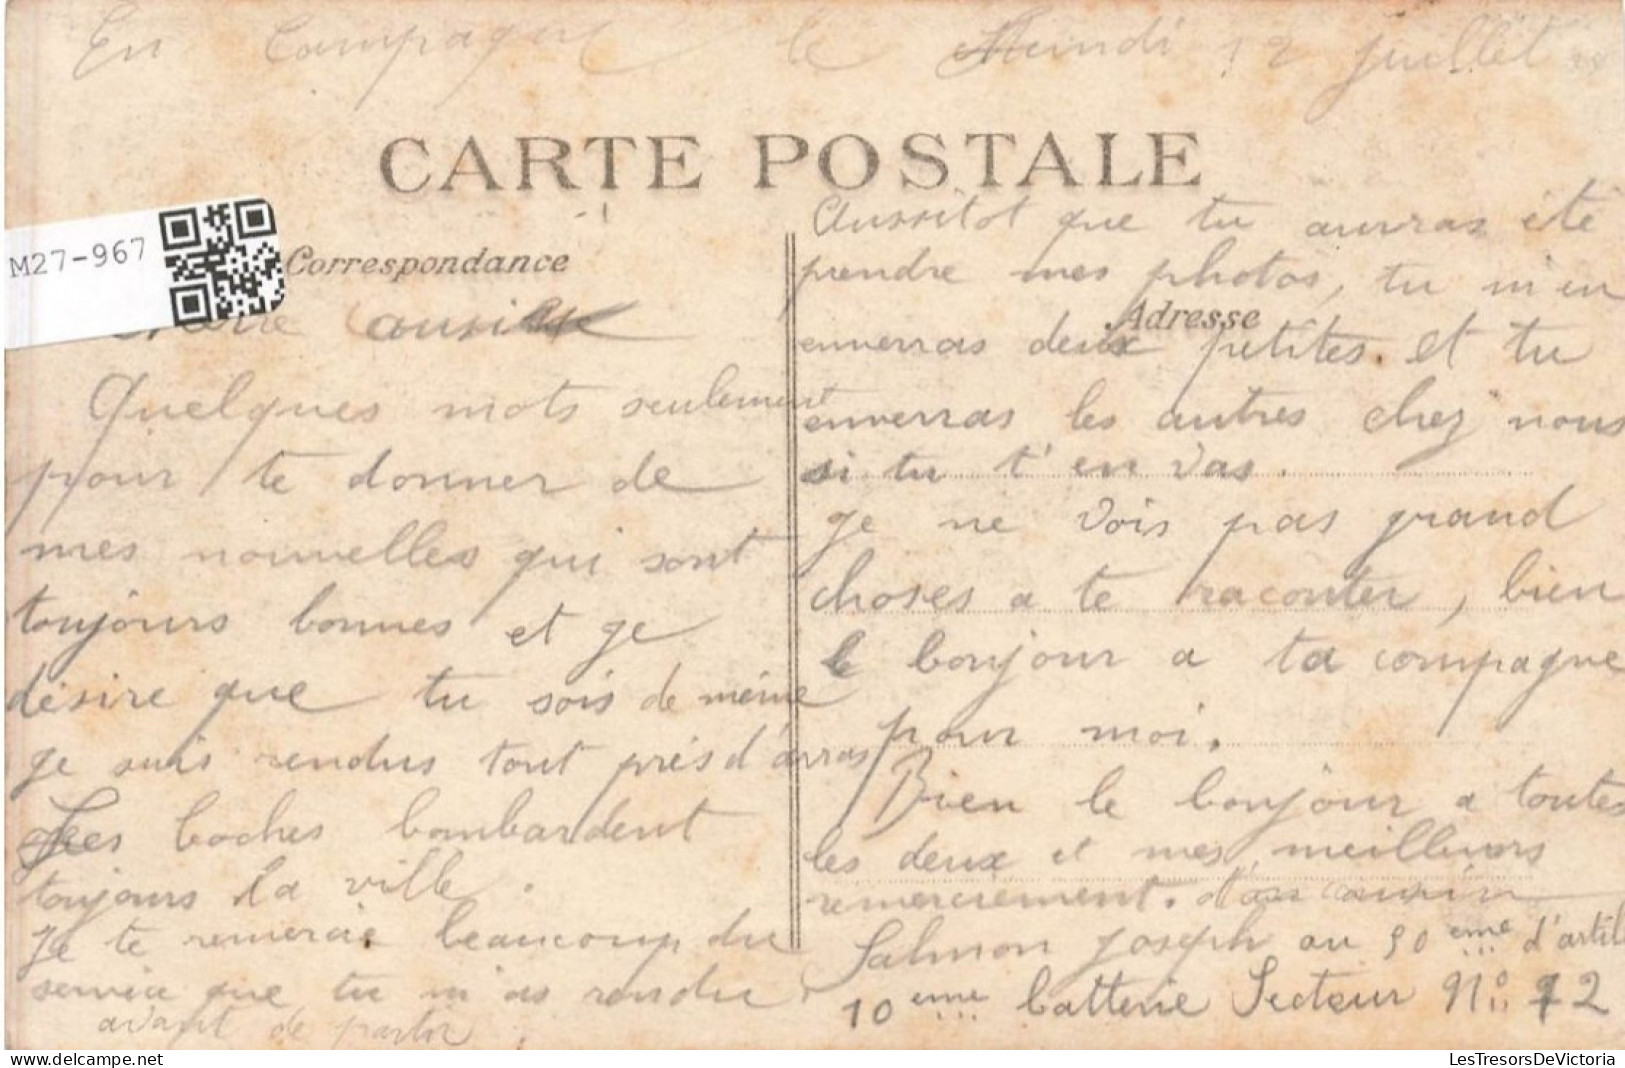 En Campagne le Lundi 12 juillet
CARTE POSTALE
M27-967
Correspondance
Cousine
Quelques mots seulement
pour te donner de
mes nouvelles qui sont
toujours bonnes et je
désire que tu sois de même
je suis rendus tout près d'arras
Les boches bombardent
toujours la ville.
Je te remercie beaucoup du
service que tu m'as rendu
avant de partir
Aussitot que tu auras été
prendre mes photos, tu m'en
Adresse
enverras deux petites. et tu
enverras les autres chez nous
si tu t'en vas.
je ne vois pas grand
choses a te raconter, bien
le bonjour a ta compagne
pour moi.
Bien le bonjour a toutes
les deux et mes meilleurs
remerciement. ton cousin
Salmon Joseph au 50eme d'artil
10eme batterie Secteur No 72
delcampe.net
LesTresorsDeVictoria